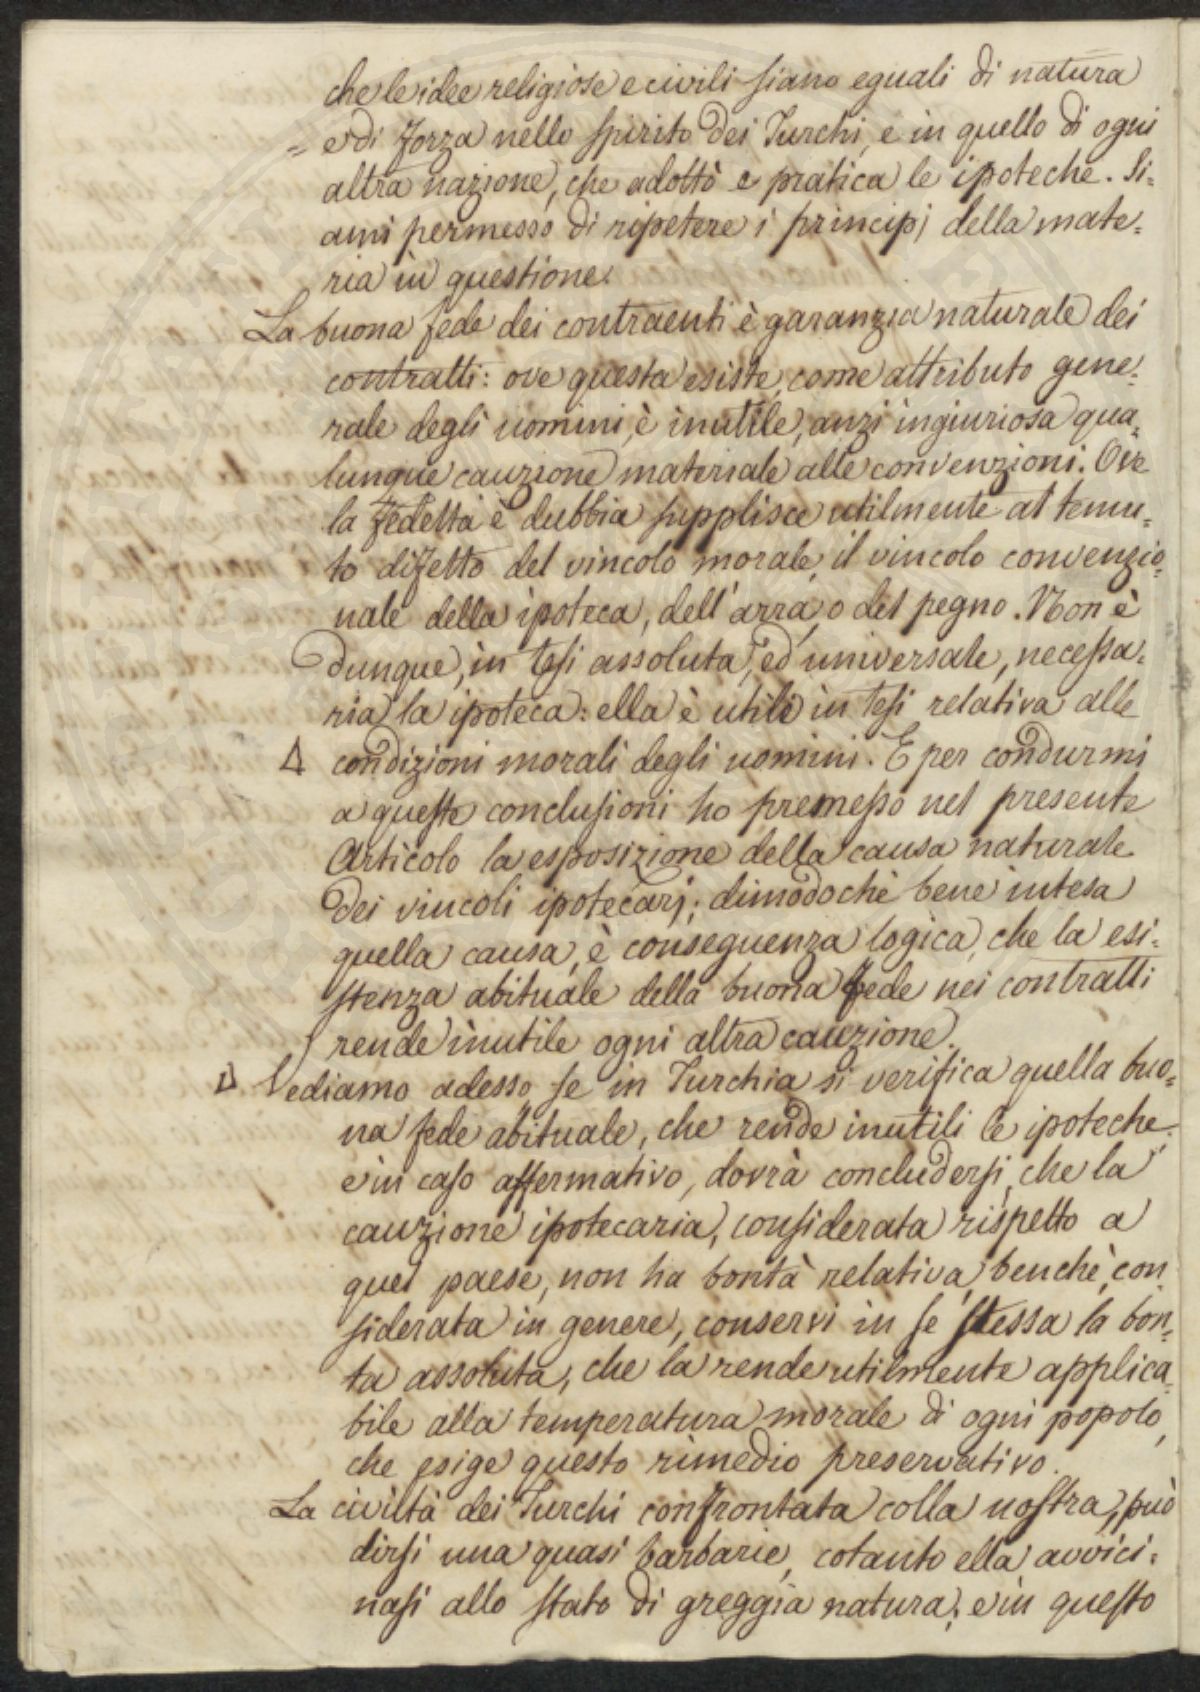 che le idee religiose e civili siano eguali di natura
= e di forza nello spirito dei Turchi, e in quello di ogni
altra nazione, che adottò e pratica le ipoteche. Si=
ami permesso di ripetere i principj della mate=
ria in questione.
La buona fede dei contraenti è garanzia naturale dei
contratti: ove questa esiste, come attributo gene=
rale degli uomini, è inutile, anzi ingiuriosa qua=
lunque cauzione materiale alle convenzioni. Ove
la fedeltà è dubbia supplisce utilmente al temu=
to difetto del vincolo morale, il vincolo convenzio=
nale della ipoteca, dell'arra, o del pegno. Non è
dunque, in tesi assoluta, ed universale, necessa=
ria la ipoteca: ella è utile in tesi relativa alle
condizioni morali degli uomini. E per condurmi
a queste conclusioni ho premesso nel presente
Articolo la esposizione della causa naturale
dei vincoli ipotecarj; dimodochè bene intesa
quella causa, è conseguenza logica, che la esi=
stenza abituale della buona fede nei contratti
rende inutile ogni altra cauzione.
Vediamo adesso se in Turchia si verifica quella buo=
na fede abituale, che rende inutili le ipoteche:
e in caso affermativo, dovrà concludersi, che la
cauzione ipotecaria, considerata rispetto a
quel paese, non ha bontà relativa, benchè, con
siderata in genere, conservi in se stessa la bon=
ta assoluta, che la rende utilmente applica=
bile alla temperatura morale di ogni popolo,
che esige questo rimedio preservativo.
La civiltà dei Turchi confrontata colla nostra, può
dirsi una quasi barbarie, cotanto ella avvici=
nasi allo stato di greggia natura; e in questo